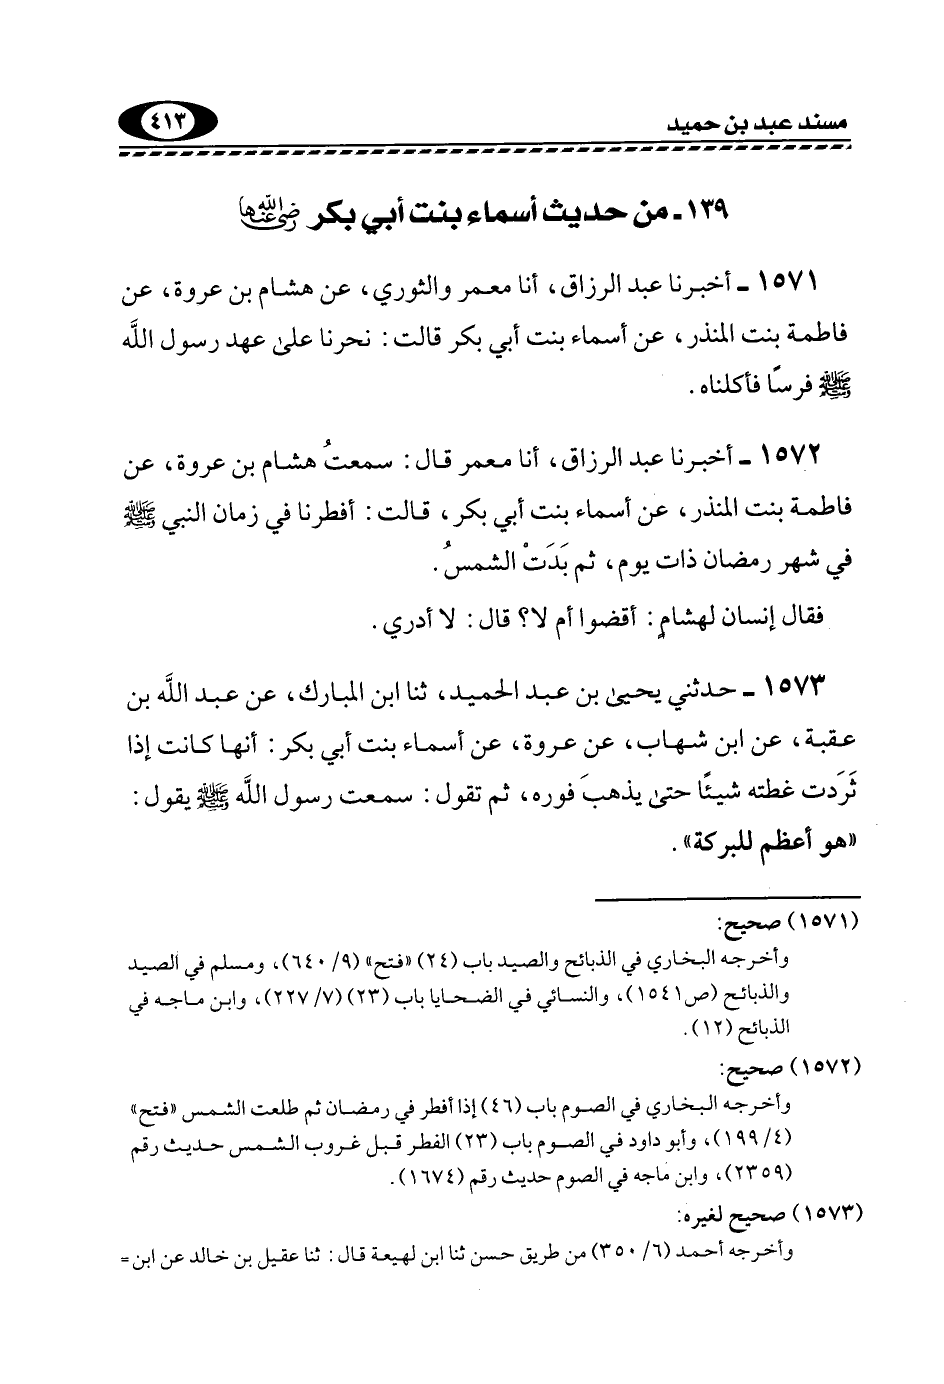 مسند عبد بن حميد
٤١٣
١٣٩ـ من حديث أسماء بنت أبي بكر رضي الله عنها
١٥٧١ ـ أخبرنا عبد الرزاق، أنا معمر والثوري، عن هشام بن عروة، عن
فاطمة بنت المنذر، عن أسماء بنت أبي بكر قالت: نحرنا على عهد رسول اللَّه
ﷺ فرسًا فأكلناه.
١٥٧٢ ـ أخبرنا عبد الرزاق، أنا معمر قال: سمعتُ هشام بن عروة، عن
فاطمة بنت المنذر، عن أسماء بنت أبي بكر، قالت: أفطرنا في زمان النبي ﷺ
في شهر رمضان ذات يوم، ثم بَدَتْ الشمسُ.
فقال إنسان لهشامٍ: أقضوا أم لا؟ قال: لا أدري.
١٥٧٣ ـ حدثني يحيى بن عبد الحميد، ثنا ابن المبارك، عن عبد اللَّه بن
عقبة، عن ابن شهاب، عن عروة، عن أسماء بنت أبي بكر: أنها كانت إذا
ثَرَدت غطته شيئًا حتى يذهبَ فوره، ثم تقول: سمعت رسول اللَّه ﷺ يقول:
«هو أعظم للبركة».
(١٥٧١) صحيح:
وأخرجه البخاري في الذبائح والصيد باب (٢٤) «فتح» (٩/ ٦٤٠)، ومسلم في الصيد
والذبائح (ص١٥٤١)، والنسائي في الضحايا باب (٢٣) (٧/ ٢٢٧)، وابن ماجه في
الذبائح (١٢).
(١٥٧٢) صحيح:
وأخرجه البخاري في الصوم باب (٤٦) إذا أفطر في رمضان ثم طلعت الشمس «فتح»
(٤/ ١٩٩)، وأبو داود في الصوم باب (٢٣) الفطر قبل غروب الشمس حديث رقم
(٢٣٥٩)، وابن ماجه في الصوم حديث رقم (١٦٧٤).
(١٥٧٣) صحيح لغيره:
وأخرجه أحمد (٦/ ٣٥٠) من طريق حسن ثنا ابن لهيعة قال: ثنا عقيل بن خالد عن ابن =